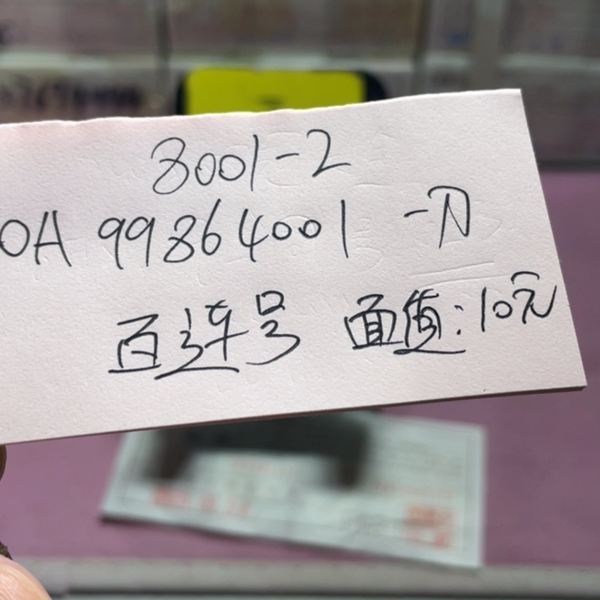 8001-2
0A 99864001 -刀
百连号 面值:10元